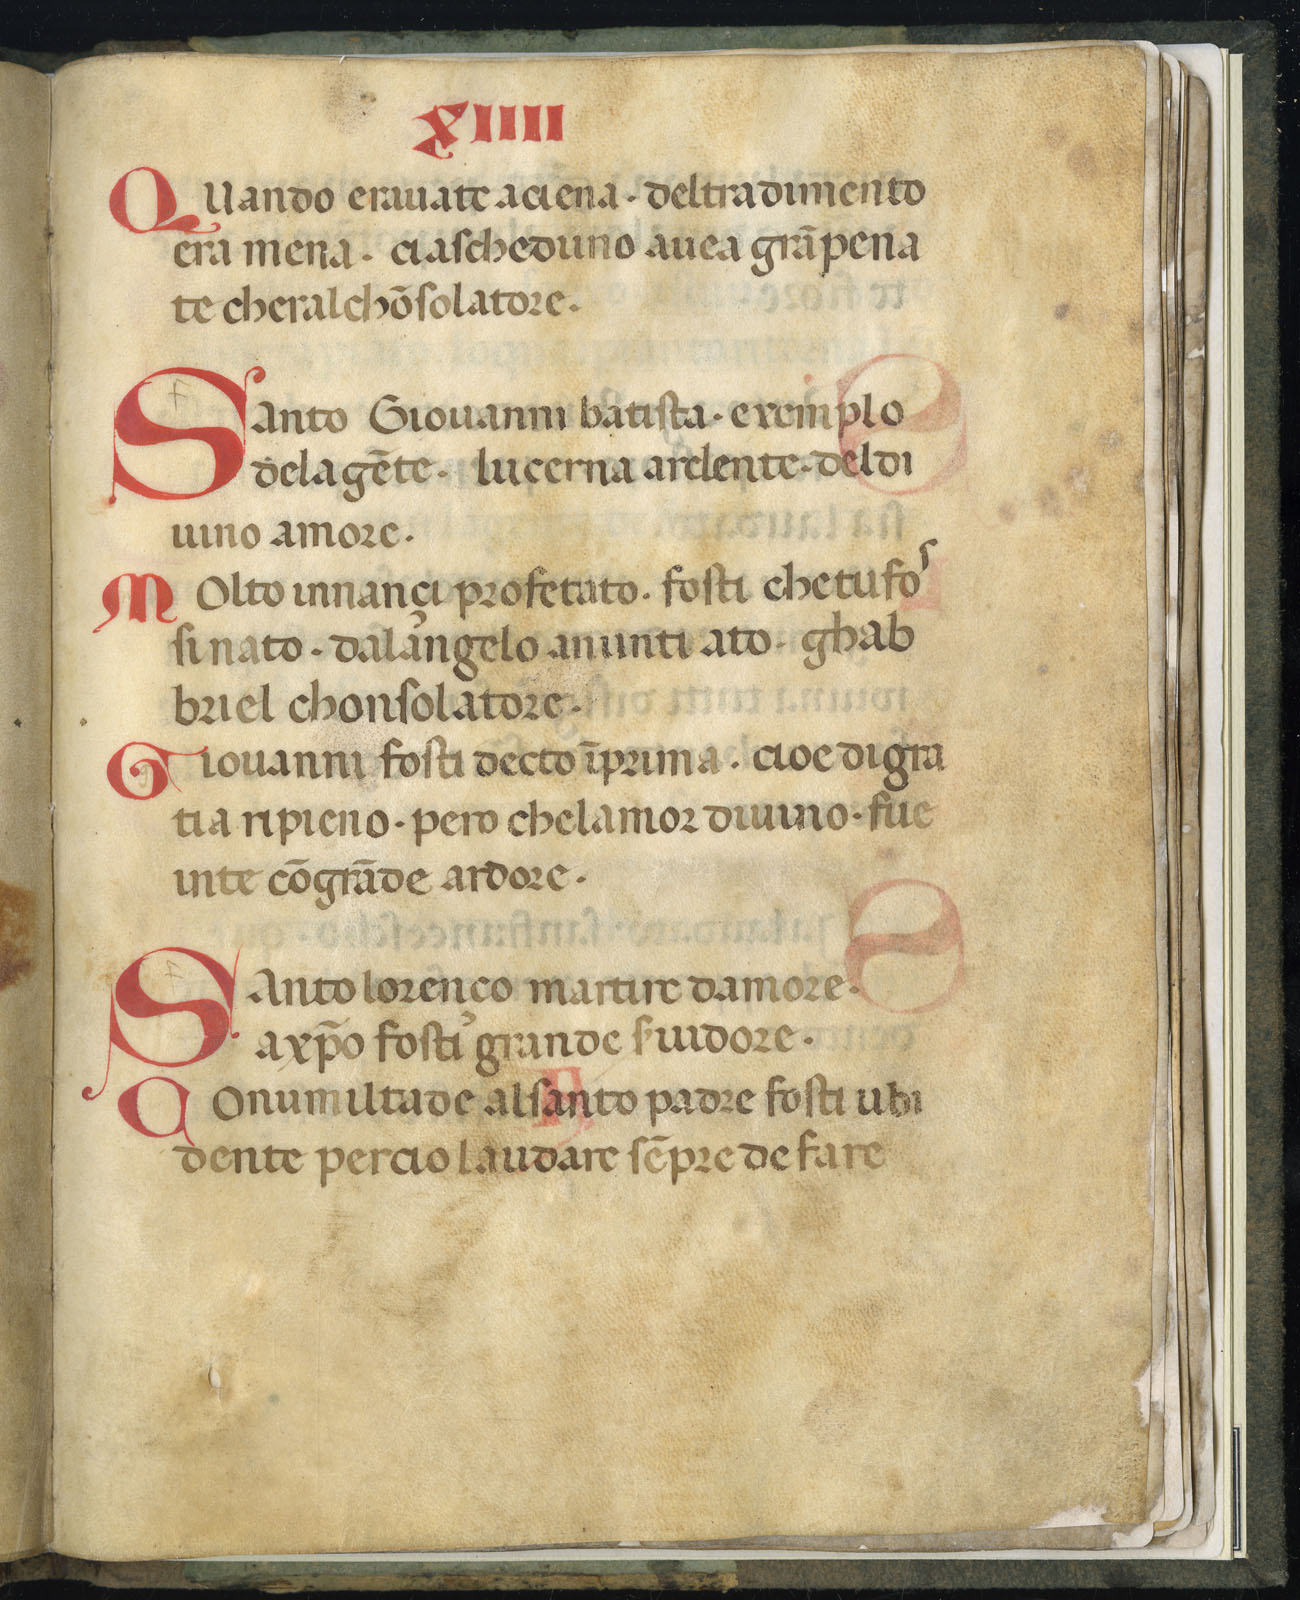 XIIII
QUando eravate aciena · deltradimento
era mena · ciascheduno avea grāpena
te cheralchōsolatore ·
Santo Giovanni batista · exemplo
delagēte · lucerna ardente · deldi
vino amore ·
MOlto innançi profetato · fosti chetufos
sinato · dalangelo anunti ato · ghab
briel chonsolatore ·
Giovanni fosti decto īprima · cioe digra
tia ripieno · pero chelamor divino · fue
inte cōgrāde ardore ·
SAnto lorenço martire damore ·
axp̄o fosti grande s'vidore ·
COnumiltade alsanto padre fosti ubi
dente percio laudare sēpre de fare